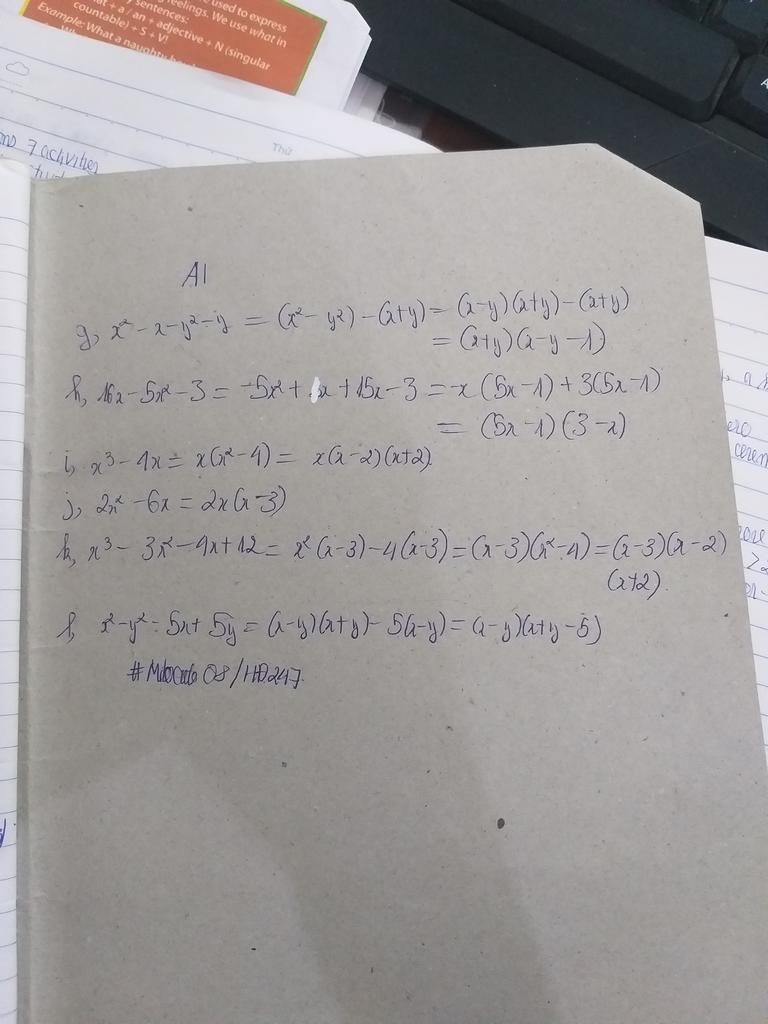 used to express
feelings. We use what in
y sentences:
at + a / an + adjective + N (singular
countable) + S + V!
Example: What a naughty
Thứ
7 activities
A1
g, x² - x - y² - y = (x² - y²) - (x+y) = (x-y)(x+y) - (x+y)
= (x+y)(x-y-1)
h, 16x - 5x² - 3 = -5x² + x + 15x - 3 = -x(5x-1) + 3(5x-1)
= (5x-1)(3-x)
i, x³ - 4x = x(x²-4) = x(x-2)(x+2).
j, 2x² - 6x = 2x(x-3)
k, x³ - 3x² - 4x + 12 = x²(x-3) - 4(x-3) = (x-3)(x²-4) = (x-3)(x-2)
(x+2).
l, x² - y² - 5x + 5y = (x-y)(x+y) - 5(x-y) = (x-y)(x+y-5)